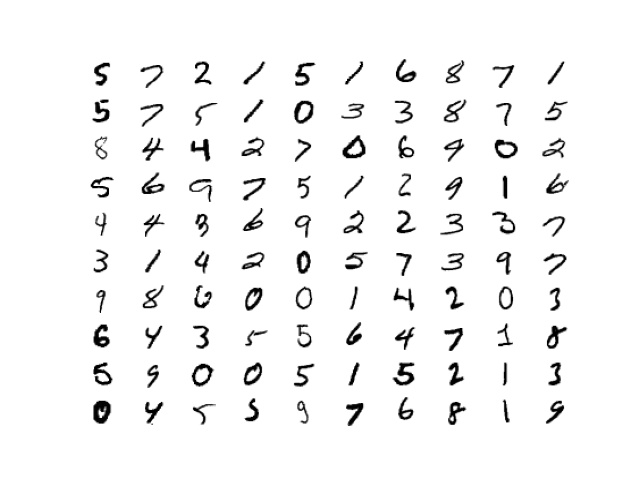 5 7 2 1 5 1 6 8 7 1
5 7 5 1 0 3 3 8 7 5
8 4 4 2 7 0 6 9 0 2
5 6 9 7 5 1 2 9 1 6
4 4 3 6 9 2 2 3 3 7
3 1 4 2 0 5 7 3 9 7
9 8 6 0 0 1 4 2 0 3
6 4 3 5 5 6 4 7 1 8
5 9 0 0 5 1 5 2 1 3
0 4 5 5 9 7 6 8 1 9